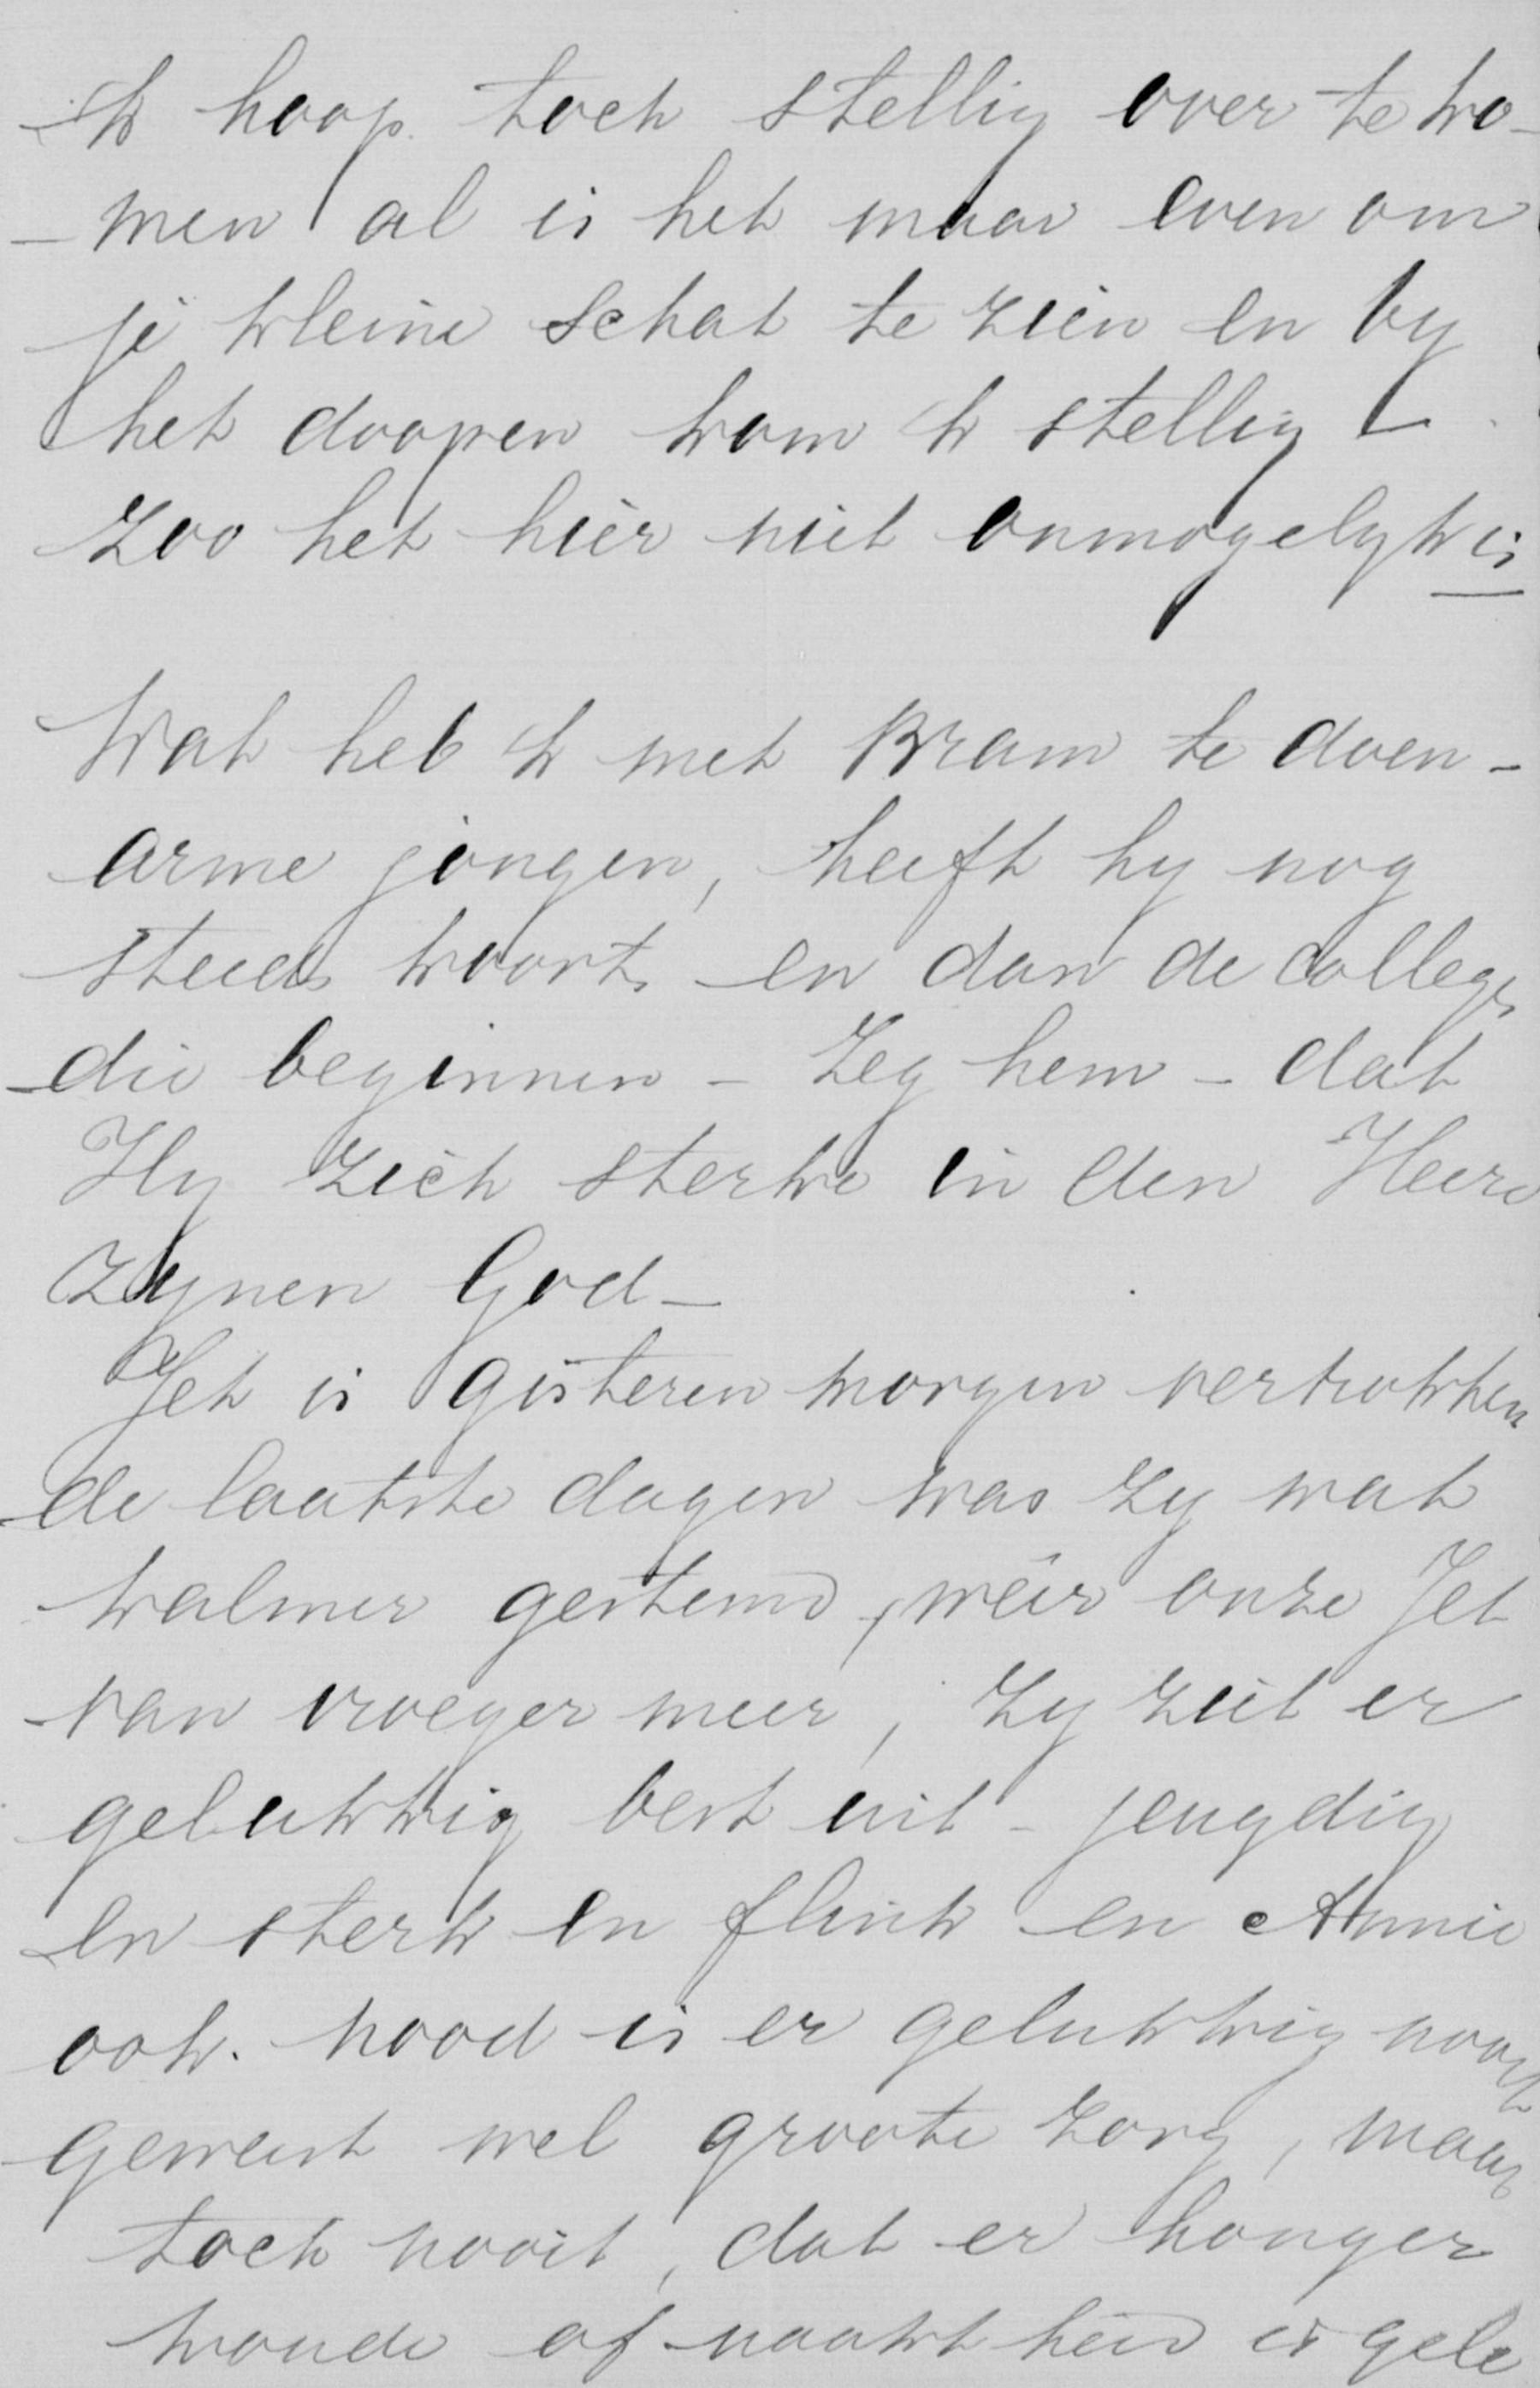 Ik hoop toch stellig over te ko-
-men al is het maar even om
je kleine schat te zien en by
het doopen kom ik stellig -
zoo het hier niet onmogelyk is
Wat heb ik met Bram te doen -
arme jongen, heeft hy nog
steeds koorts en dan de colleges
die beginnen - Zeg hem - dat
Hy zich sterke in den Heere
zynen God -
Jet is gisteren morgen vertrokken
de laatste dagen was zy wat
kalmer gestemd, wéér onze Jet
van vroeger meer, zy ziet er
gelukkig best uit - jeugdig
en sterk en flink en Annie
ook. Nood is er gelukkig nooit
geweest wel groote zorg, maar
toch nooit, dat er honger
koude of naaktheid is gele